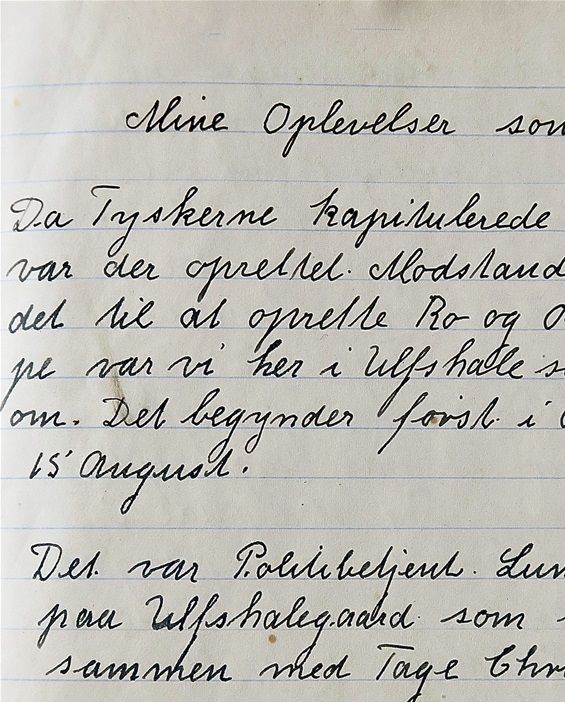 Mine Oplevelser som
Da Tyskerne kapitulerede
var der oprettet. Modstand
det til at oprette Ro og O
pe var vi her i Ulfshale s
om. Det begynder først i
15' August.
Det var Politibetjent. Lun
paa Ulfshalegaard som
sammen med Tage Chr